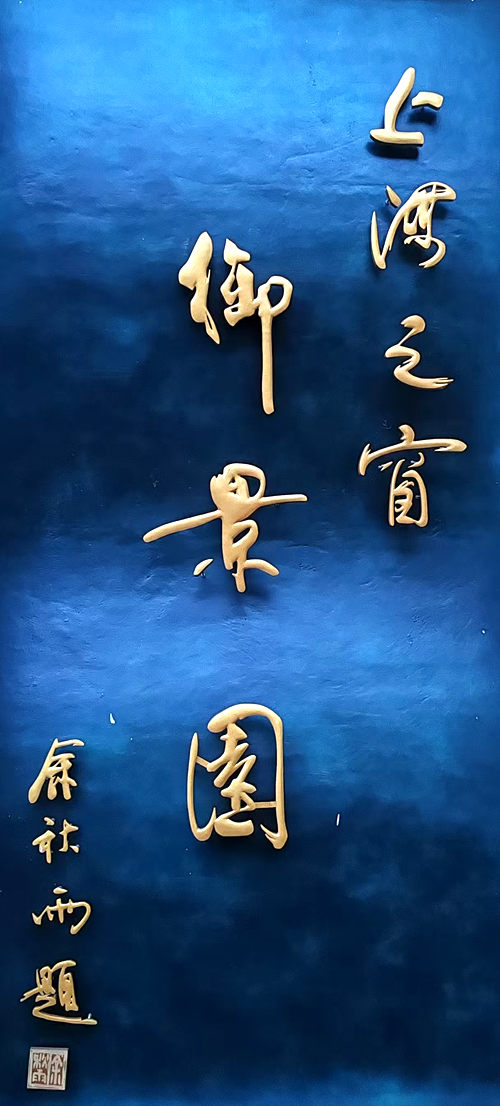 上海之窗
御景園
余秋雨題